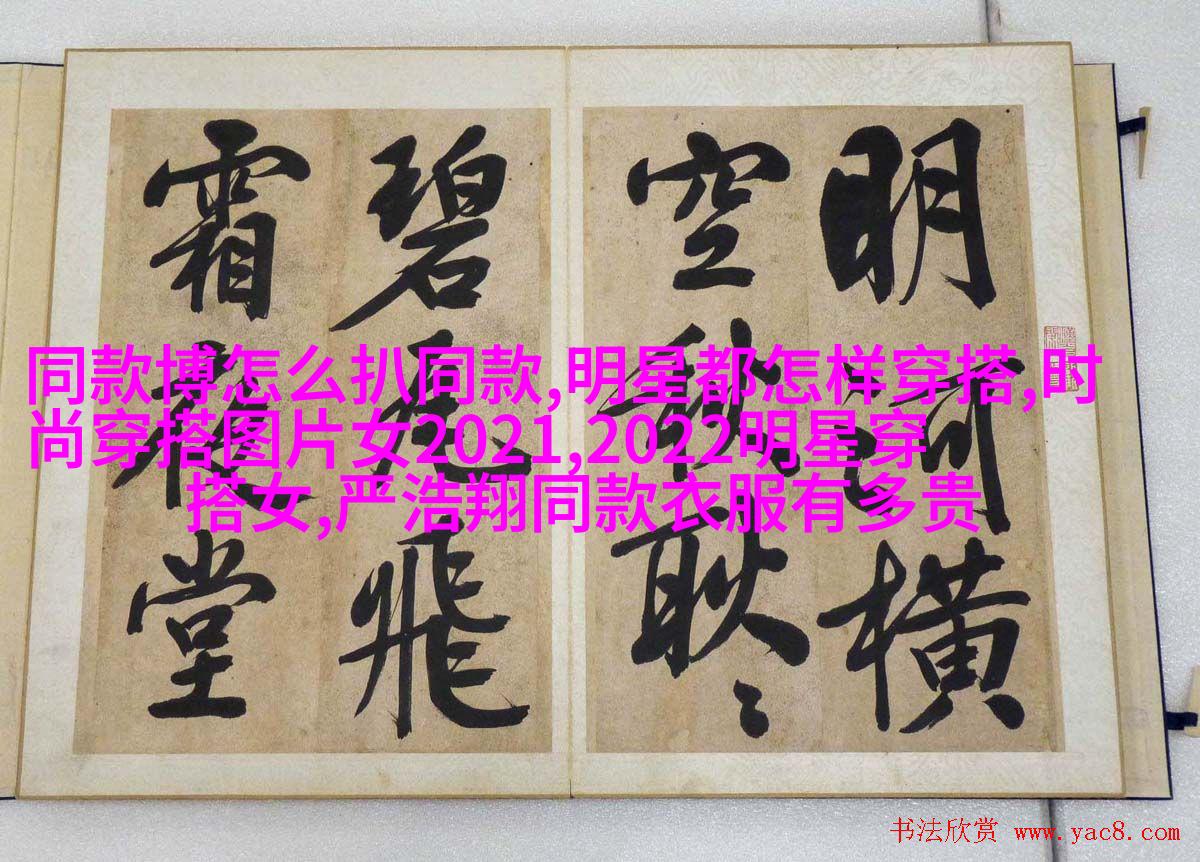 同款博怎么扒同款,明星都怎样穿搭,时
尚穿搭图片女2021,2022明星穿
搭女,严浩翔同款衣服有多贵
明河橫
空秋耿〻
碧瓦飛
霜夜堂
书法欣赏 www.yac8.com